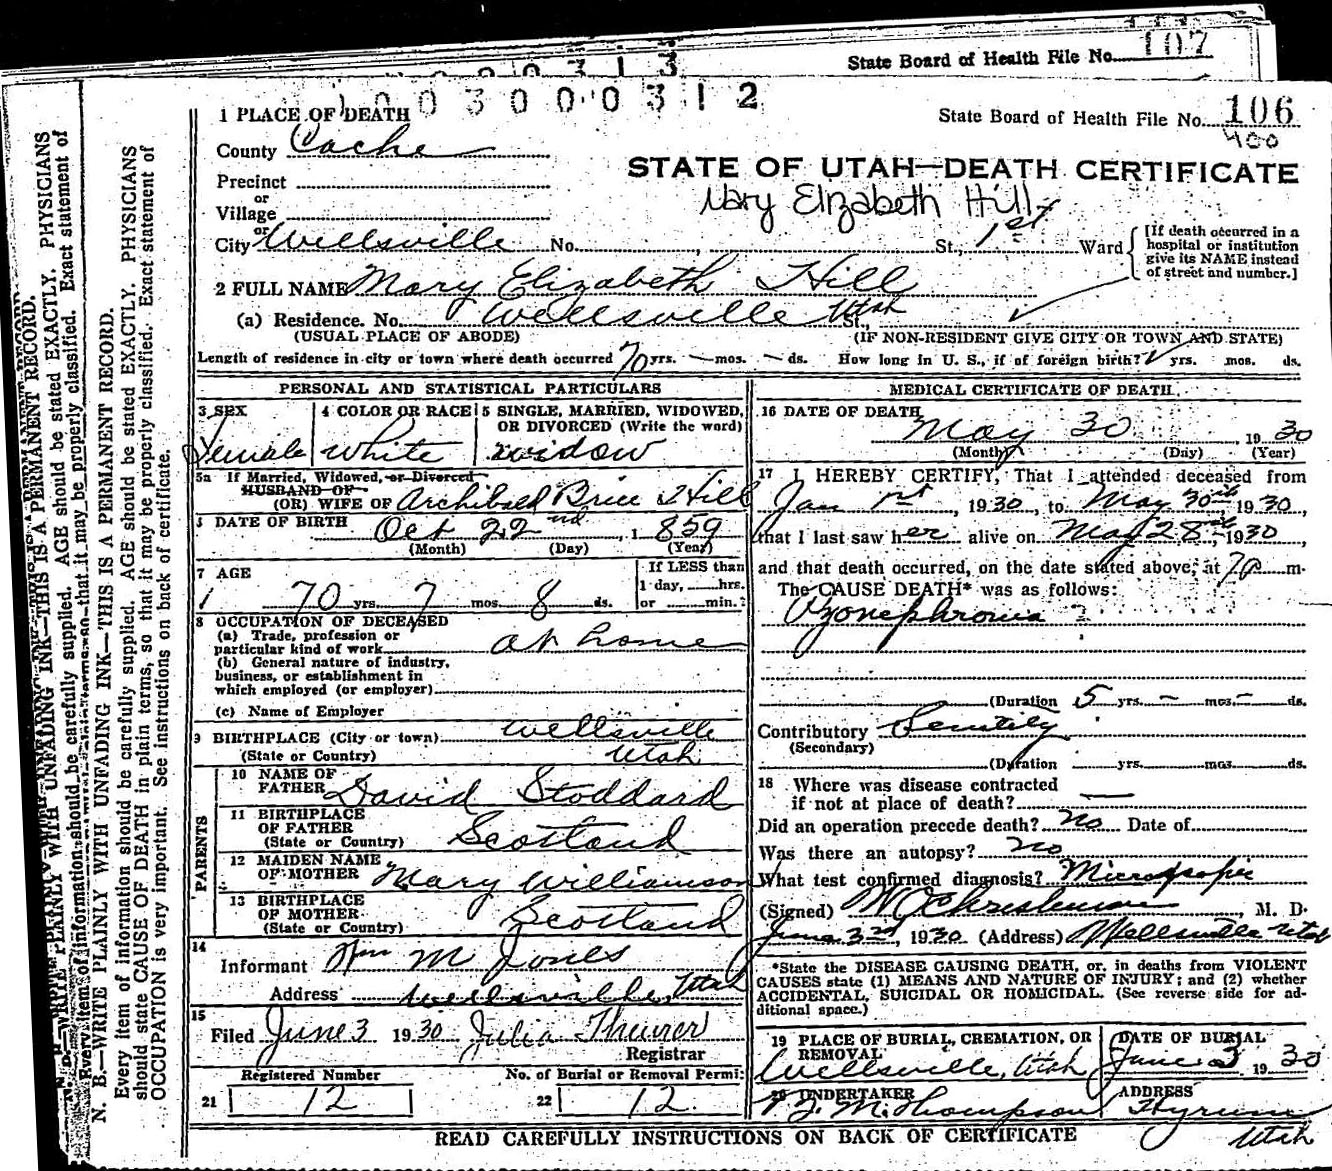 State Board of Health File No. 107
1 0 0 3 0 0 0 3 1 2
1 PLACE OF DEATH
State Board of Health File No. 106
400
County Cache
STATE OF UTAH—DEATH CERTIFICATE
Precinct
or
Village
Mary Elizabeth Hill
or
City Wellsville No. St., 1st Ward
[If death occurred in a
hospital or institution
give its NAME instead
of street and number.]
2 FULL NAME Mary Elizabeth Hill
(a) Residence. No. Wellsville Utah St.,
(USUAL PLACE OF ABODE) (IF NON-RESIDENT GIVE CITY OR TOWN AND STATE)
Length of residence in city or town where death occurred 70 yrs. — mos. — ds. How long in U. S., if of foreign birth? yrs. mos. ds.
PERSONAL AND STATISTICAL PARTICULARS
3 SEX
Female
4 COLOR OR RACE
White
5 SINGLE, MARRIED, WIDOWED,
OR DIVORCED (Write the word)
widow
5a If Married, Widowed, or Divorced
HUSBAND OF
(OR) WIFE OF Archibald Brice Hill
DATE OF BIRTH Oct 22nd, 1859
(Month) (Day) (Year)
7 AGE
70 yrs. 7 mos. 8 ds.
If LESS than
1 day, hrs.
or min.
8 OCCUPATION OF DECEASED
(a) Trade, profession or
particular kind of work at home
(b) General nature of industry,
business, or establishment in
which employed (or employer)
(c) Name of Employer
9 BIRTHPLACE (City or town) Wellsville
(State or Country) Utah
PARENTS
10 NAME OF
FATHER David Stoddard
11 BIRTHPLACE
OF FATHER
(State or Country) Scotland
12 MAIDEN NAME
OF MOTHER Mary Williamson
13 BIRTHPLACE
OF MOTHER
(State or Country) Scotland
14
Informant Wm M Jones
Address Wellsville, Utah
15
Filed June 3 1930 Julia Theurer
Registrar
Registered Number
21 12
No. of Burial or Removal Permit
22 12
MEDICAL CERTIFICATE OF DEATH
16 DATE OF DEATH
May 30, 1930
(Month) (Day) (Year)
17 I HEREBY CERTIFY, That I attended deceased from
Jan 1st, 1930, to May 30th, 1930,
that I last saw her alive on May 28th, 1930,
and that death occurred, on the date stated above, at 7 P m.
The CAUSE DEATH* was as follows:
(Duration 5 yrs. — mos. — ds.
Contributory Senility
(Secondary)
(Duration yrs. mos. ds.
18 Where was disease contracted
if not at place of death? —
Did an operation precede death? no Date of
Was there an autopsy? no
What test confirmed diagnosis? Microscopic
(Signed) , M. D.
June 3rd, 1930 (Address) Wellsville Utah
*State the DISEASE CAUSING DEATH, or, in deaths from VIOLENT
CAUSES state (1) MEANS AND NATURE OF INJURY; and (2) whether
ACCIDENTAL, SUICIDAL OR HOMICIDAL. (See reverse side for ad-
ditional space.)
19 PLACE OF BURIAL, CREMATION, OR
REMOVAL
Wellsville, Utah
DATE OF BURIAL
June 3 1930
20 UNDERTAKER
M. Thompson
ADDRESS
Hyrum
Utah
READ CAREFULLY INSTRUCTIONS ON BACK OF CERTIFICATE
N. B.—WRITE PLAINLY WITH UNFADING INK—THIS IS A PERMANENT RECORD.
Every item of information should be carefully supplied. AGE should be stated EXACTLY. PHYSICIANS
should state CAUSE OF DEATH in plain terms, so that it may be properly classified. Exact statement of
OCCUPATION is very important. See instructions on back of certificate.